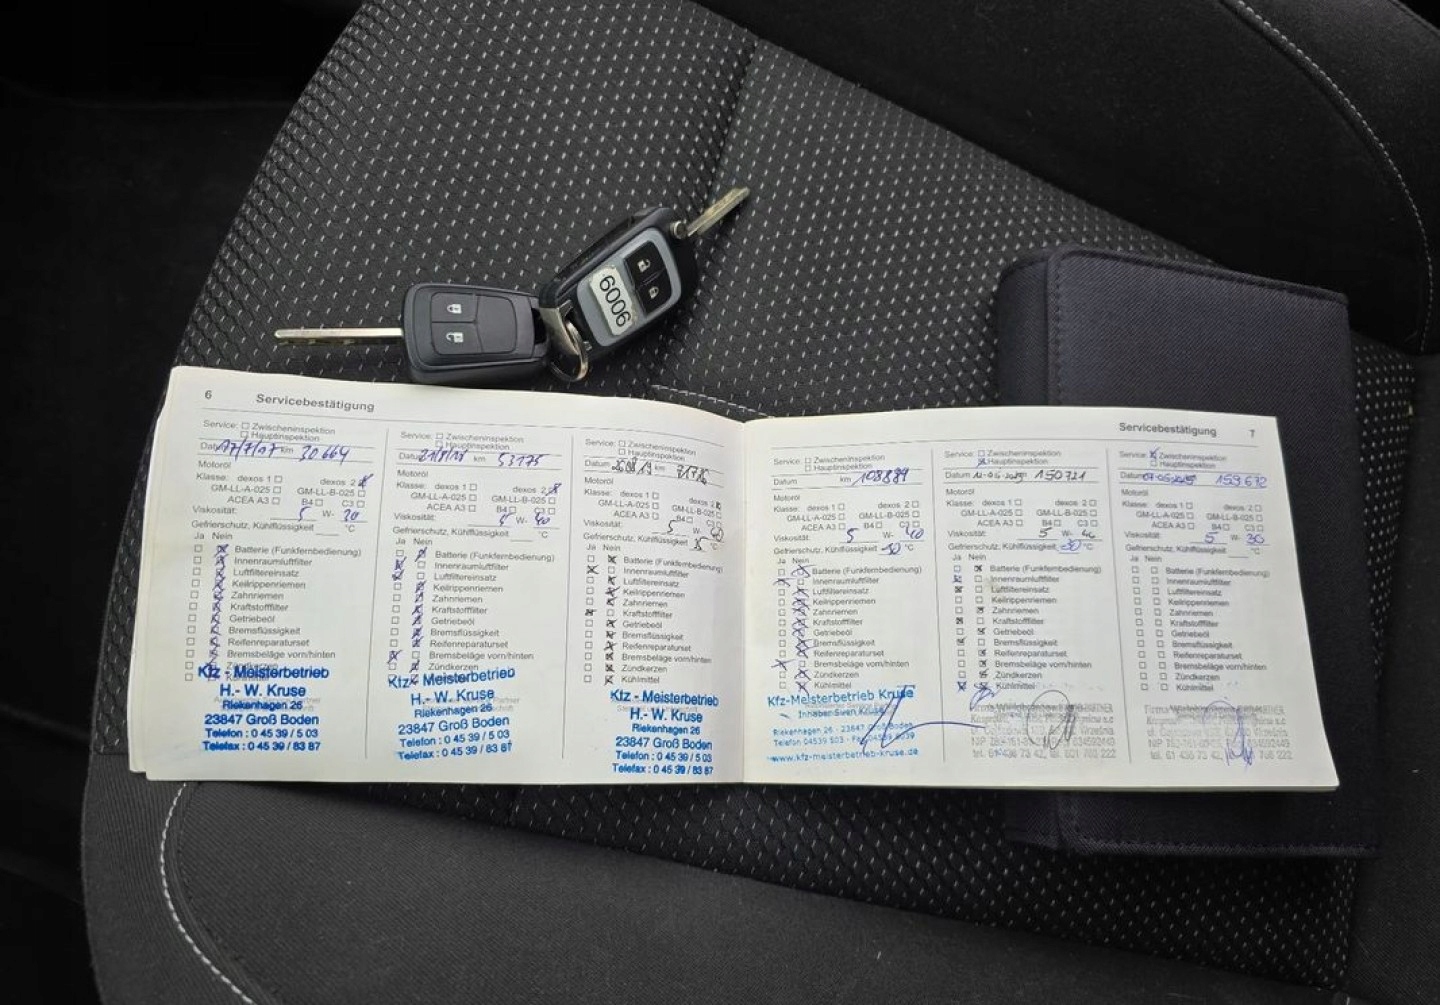 6006
6 Servicebestätigung
Service: Zwischeninspektion
Hauptinspektion
Datum 17/7/17 km 30664
Motoröl
Klasse: dexos 1 dexos 2
GM-LL-A-025 GM-LL-B-025
ACEA A3 B4 C3
Viskosität: 5 W- 30
Gefrierschutz, Kühlflüssigkeit °C
Ja Nein
Batterie (Funkfernbedienung)
Innenraumluftfilter
Luftfiltereinsatz
Keilrippenriemen
Zahnriemen
Kraftstofffilter
Getriebeöl
Bremsflüssigkeit
Reifenreparaturset
Bremsbeläge vorn/hinten
Zündkerzen
Kfz - Meisterbetrieb
H.- W. Kruse
Riekenhagen 26
23847 Groß Boden
Telefon : 0 45 39 / 5 03
Telefax : 0 45 39 / 83 87
Service: Zwischeninspektion
Hauptinspektion
Datum km 53175
Motoröl
Klasse: dexos 1 dexos 2
GM-LL-A-025 GM-LL-B-025
ACEA A3 B4 C3
Viskosität: W- 40
Gefrierschutz, Kühlflüssigkeit °C
Ja Nein
Batterie (Funkfernbedienung)
Innenraumluftfilter
Luftfiltereinsatz
Keilrippenriemen
Zahnriemen
Kraftstofffilter
Getriebeöl
Bremsflüssigkeit
Reifenreparaturset
Bremsbeläge vorn/hinten
Zündkerzen
Kfz - Meisterbetrieb
H.- W. Kruse
Riekenhagen 26
23847 Groß Boden
Telefon : 0 45 39 / 5 03
Telefax : 0 45 39 / 83 87
Service: Zwischeninspektion
Hauptinspektion
Datum km
Motoröl
Klasse: dexos 1 dexos 2
GM-LL-A-025 GM-LL-B-025
ACEA A3 B4 C3
Viskosität: 5 W- 40
Gefrierschutz, Kühlflüssigkeit °C
Ja Nein
Batterie (Funkfernbedienung)
Innenraumluftfilter
Luftfiltereinsatz
Keilrippenriemen
Zahnriemen
Kraftstofffilter
Getriebeöl
Bremsflüssigkeit
Reifenreparaturset
Bremsbeläge vorn/hinten
Zündkerzen
Kühlmittel
Kfz - Meisterbetrieb
H.- W. Kruse
Riekenhagen 26
23847 Groß Boden
Telefon : 0 45 39 / 5 03
Telefax : 0 45 39 / 83 87
Servicebestätigung 7
Service: Zwischeninspektion
Hauptinspektion
Datum km 108889
Motoröl
Klasse: dexos 1 dexos 2
GM-LL-A-025 GM-LL-B-025
ACEA A3 B4 C3
Viskosität: 5 W- 40
Gefrierschutz, Kühlflüssigkeit °C
Ja Nein
Batterie (Funkfernbedienung)
Innenraumluftfilter
Luftfiltereinsatz
Keilrippenriemen
Zahnriemen
Kraftstofffilter
Getriebeöl
Bremsflüssigkeit
Reifenreparaturset
Bremsbeläge vorn/hinten
Zündkerzen
Kühlmittel
Kfz-Meisterbetrieb Kruse
Inhaber Sven Kruse
Riekenhagen 26 - 23847 Groß Boden
Telefon 04539 503
www.kfz-meisterbetrieb-kruse.de
Service: Zwischeninspektion
Hauptinspektion
Datum km 150721
Motoröl
Klasse: dexos 1 dexos 2
GM-LL-A-025 GM-LL-B-025
ACEA A3 B4 C3
Viskosität: 5 W-
Gefrierschutz, Kühlflüssigkeit °C
Ja Nein
Batterie (Funkfernbedienung)
Innenraumluftfilter
Luftfiltereinsatz
Keilrippenriemen
Zahnriemen
Kraftstofffilter
Getriebeöl
Bremsflüssigkeit
Reifenreparaturset
Bremsbeläge vorn/hinten
Zündkerzen
Kühlmittel
Service: Zwischeninspektion
Hauptinspektion
Datum 159632
Motoröl
Klasse: dexos 1 dexos 2
GM-LL-A-025 GM-LL-B-025
ACEA A3 B4 C3
Viskosität: 5 W- 30
Gefrierschutz, Kühlflüssigkeit °C
Ja Nein
Batterie (Funkfernbedienung)
Innenraumluftfilter
Luftfiltereinsatz
Keilrippenriemen
Zahnriemen
Kraftstofffilter
Getriebeöl
Bremsflüssigkeit
Reifenreparaturset
Bremsbeläge vorn/hinten
Zündkerzen
Kühlmittel